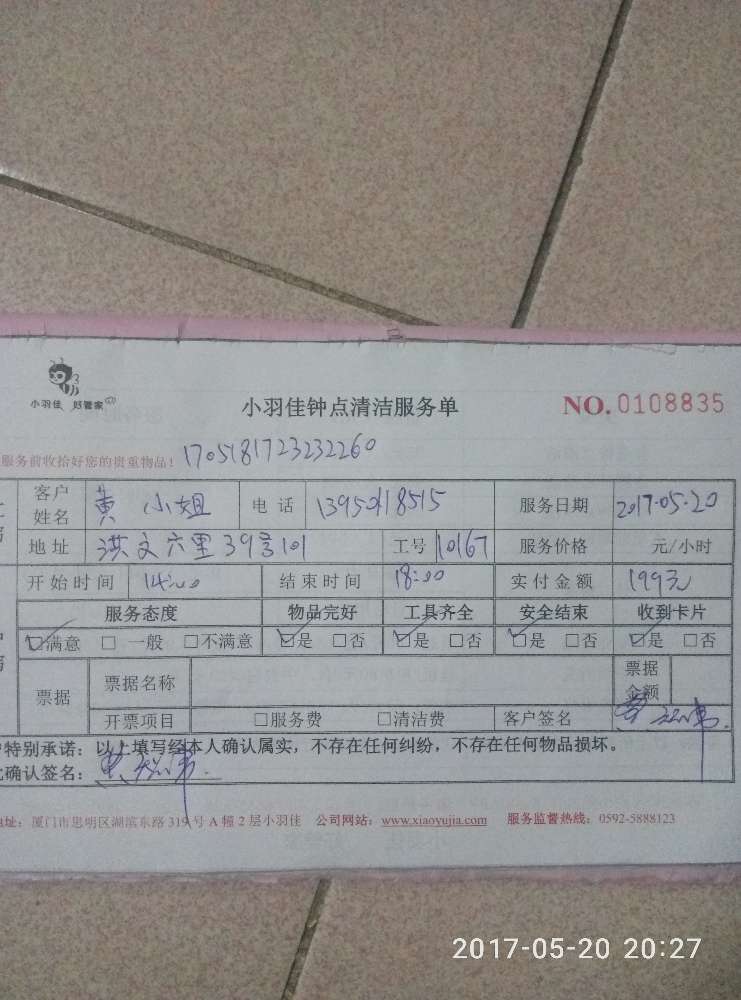 小羽佳 好管家
小羽佳钟点清洁服务单
NO.0108835
服务前收拾好您的贵重物品!
1705181723232260
客户姓名 黄小姐 电话 13950418515 服务日期 2017.05.20
地址 洪文六里39号101 工号 10167 服务价格 元/小时
开始时间 14:00 结束时间 18:00 实付金额 199元
服务态度 物品完好 工具齐全 安全结束 收到卡片
☑满意 □一般 □不满意 ☑是 □否 ☑是 □否 ☑是 □否 ☑是 □否
票据 票据名称 票据金额
开票项目 □服务费 □清洁费 客户签名
特别承诺:以上填写经本人确认属实,不存在任何纠纷,不存在任何物品损坏。
确认签名:
地址:厦门市思明区湖滨东路319号A幢2层小羽佳 公司网站:www.xiaoyujia.com 服务监督热线:0592-5888123
2017-05-20 20:27